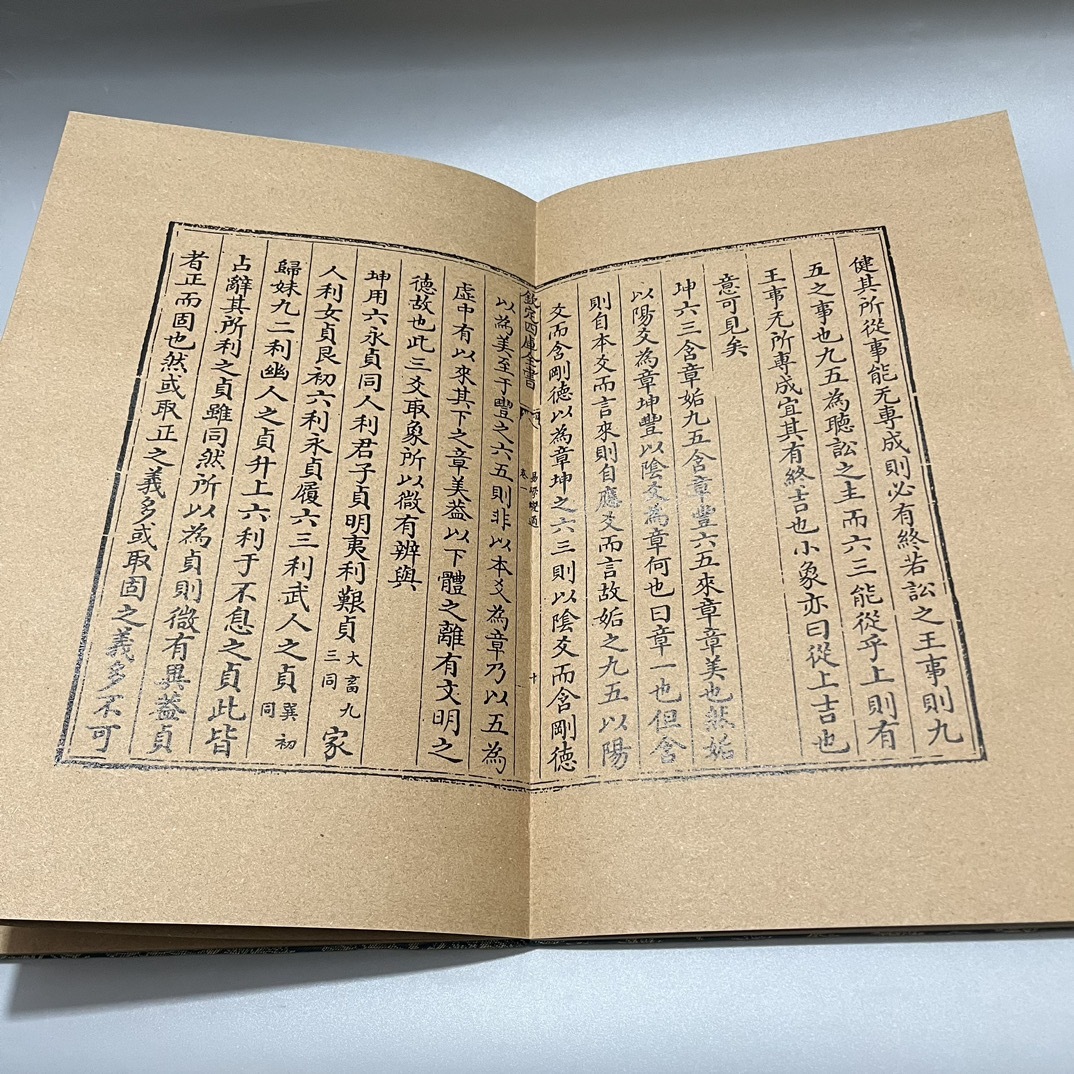 健其所從事能无專成則必有終若訟之王事則九
五之事也九五為聽訟之主而六三能從乎上則有
王事无所專成宜其有終吉也小象亦曰從上吉也
意可見矣
坤六三含章姤九五含章豐六五來章章美也然姤
以陽爻為章坤豐以陰爻為章何也曰章一也但含
則自本爻而言來則自應爻而言故姤之九五以陽
爻而含剛德以為章坤之六三則以陰爻而含剛德
欽定四庫全書
卷一
易學變通
十
以為美至于豐之六五則非以本爻為章乃以五為
虛中有以來其下之章美葢以下體之離有文明之
德故也此三爻取象所以微有辨與
坤用六永貞同人利君子貞明夷利艱貞大畜九三同家
人利女貞艮初六利永貞履六三利武人之貞巽初同
歸妹九二利幽人之貞升上六利于不息之貞此皆
占辭其所利之貞雖同然所以為貞則微有異葢貞
者正而固也然或取正之義多或取固之義多不可